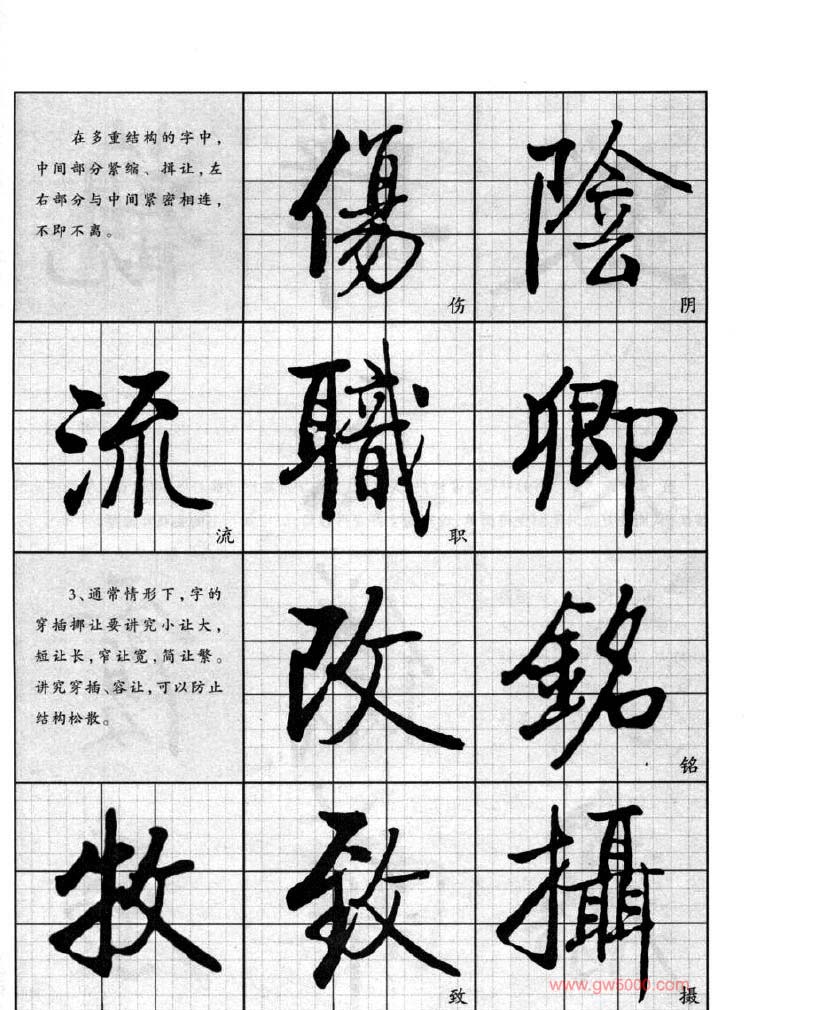 在多重结构的字中，
中间部分紧缩、揖让，左
右部分与中间紧密相连，
不即不离。
傷
伤
陰
阴
流
流
職
职
卿
3、通常情形下，字的
穿插挪让要讲究小让大，
短让长，窄让宽，简让繁。
讲究穿插、容让，可以防止
结构松散。
改
銘
铭
牧
致
致
攝
摄
www.gw5000.com